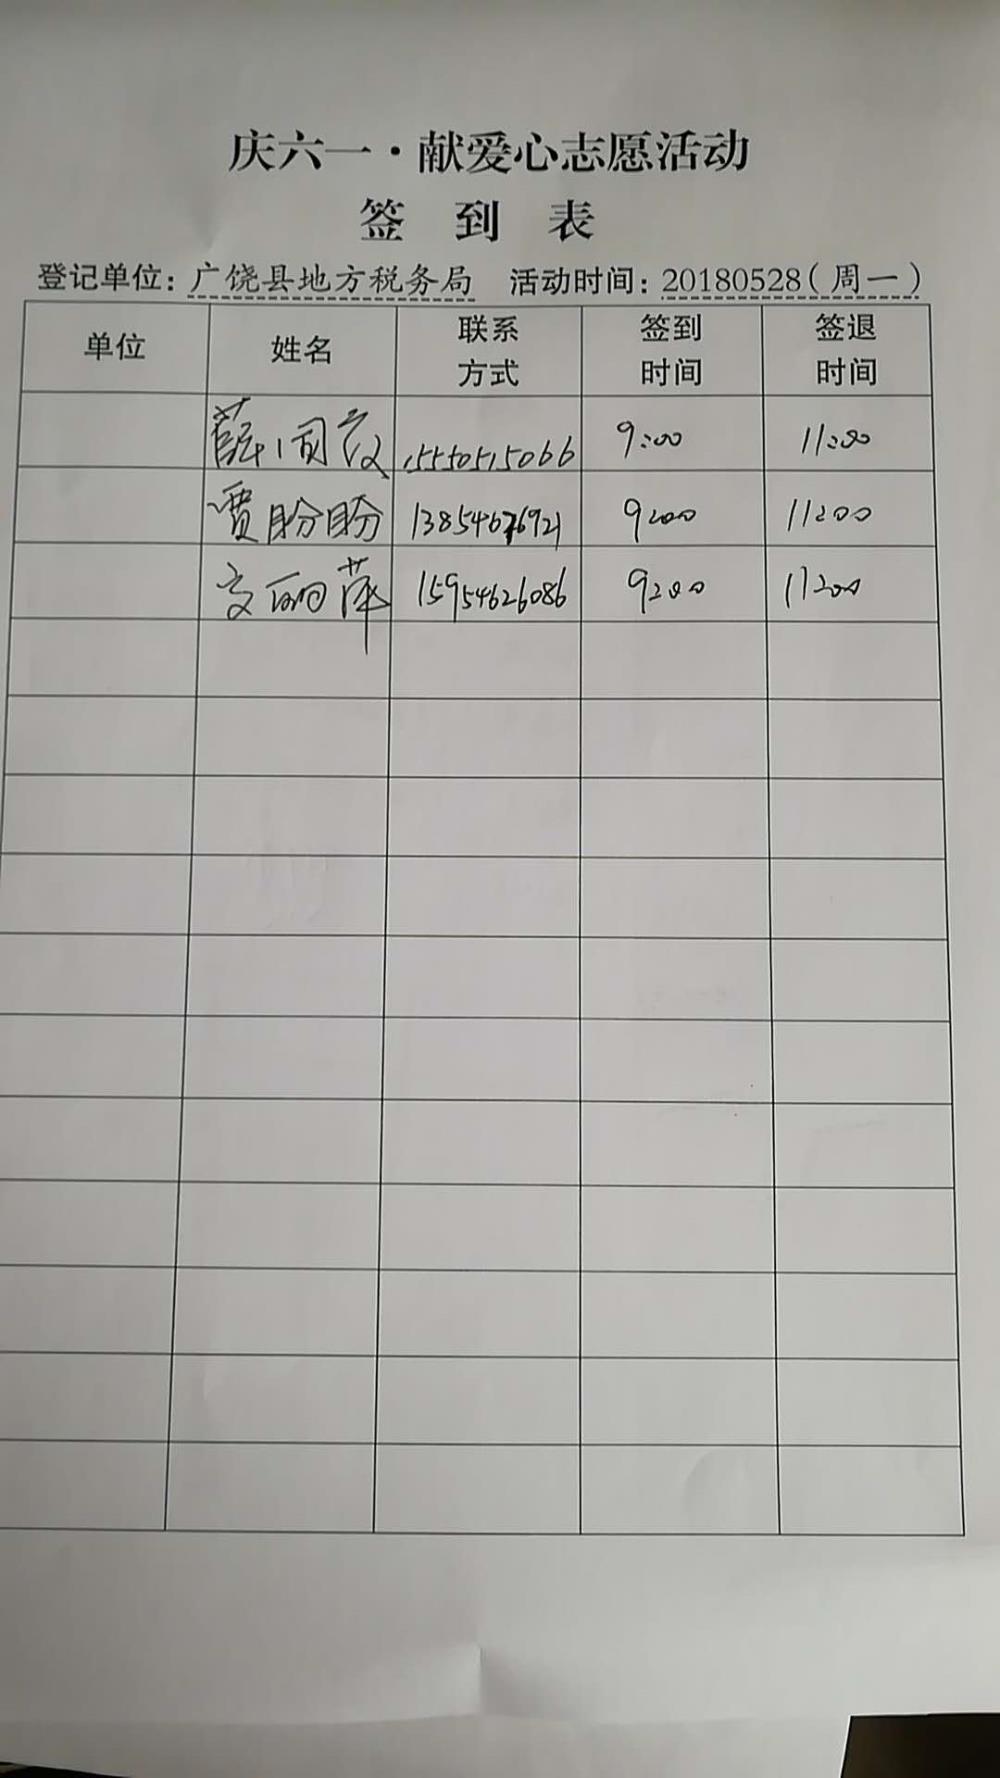 庆六一·献爱心志愿活动
签 到 表
登记单位：广饶县地方税务局 活动时间：20180528（周一）
单位 姓名 联系方式 签到时间 签退时间
薛 15550515066 9:00 11:00
贾盼盼 13854676921 9:00 11:00
丽萍 15954626086 9:00 11:00